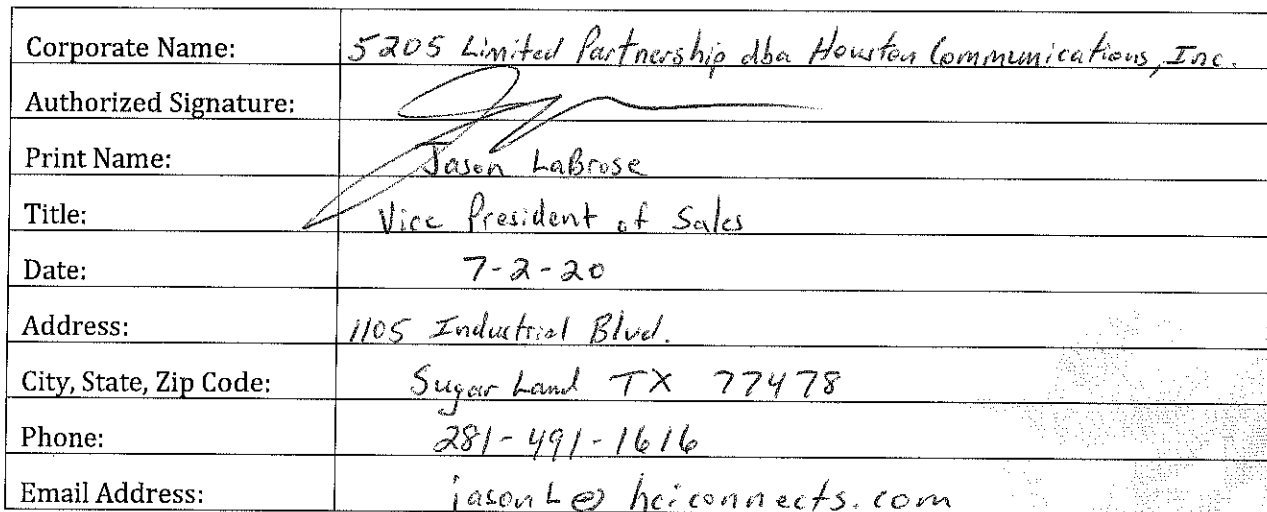 Corporate Name: 5205 Limited Partnership dba Houston Communications, Inc.
Authorized Signature:
Print Name: Jason LaBrose
Title: Vice President of Sales
Date: 7-2-20
Address: 1105 Industrial Blvd.
City, State, Zip Code: Sugar Land TX 77478
Phone: 281-491-1616
Email Address: jasonL@hciconnects.com